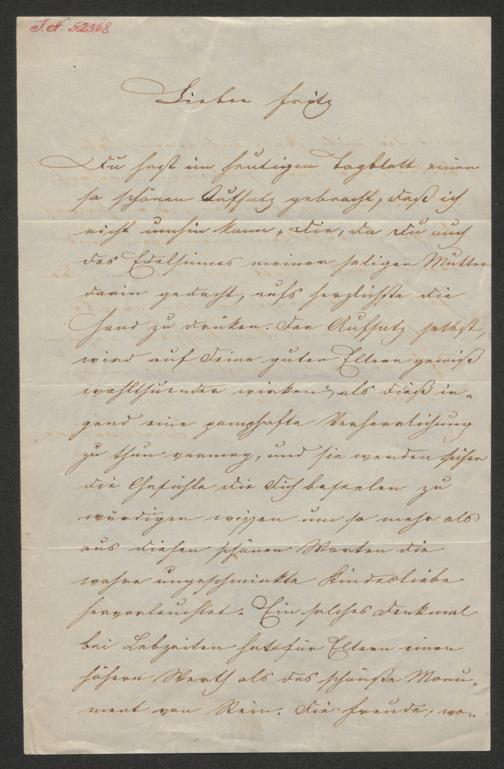 J. N. 52368
Lieber Fritz
Du hast im heutigen Tagblatt einen
so schönen Aufsatz gebracht, daß ich
nicht umhin kann, Dir, da Du auch
des Edelsinnes meiner seligen Mutter
darin gedacht, aufs herzlichste die
Hand zu drüken. Der Aufsatz selbst,
wird auf Deine guten Eltern gewiß
wohlthuender wirken, als dieß ir„
gend eine pomphafte Verherrlichung
zu thun vermag, und sie werden sicher
die Gefühle die Dich beseelen zu
würdigen wissen um so mehr als
aus diesen schönen Worten die
wahre ungeschminkte Kindesliebe
hervorleuchtet. Ein solches Denkmal
bei Lebzeiten hat für Eltern einen
höhern Werth als das schönste Monu„
ment von Stein. Die Freude, wo„